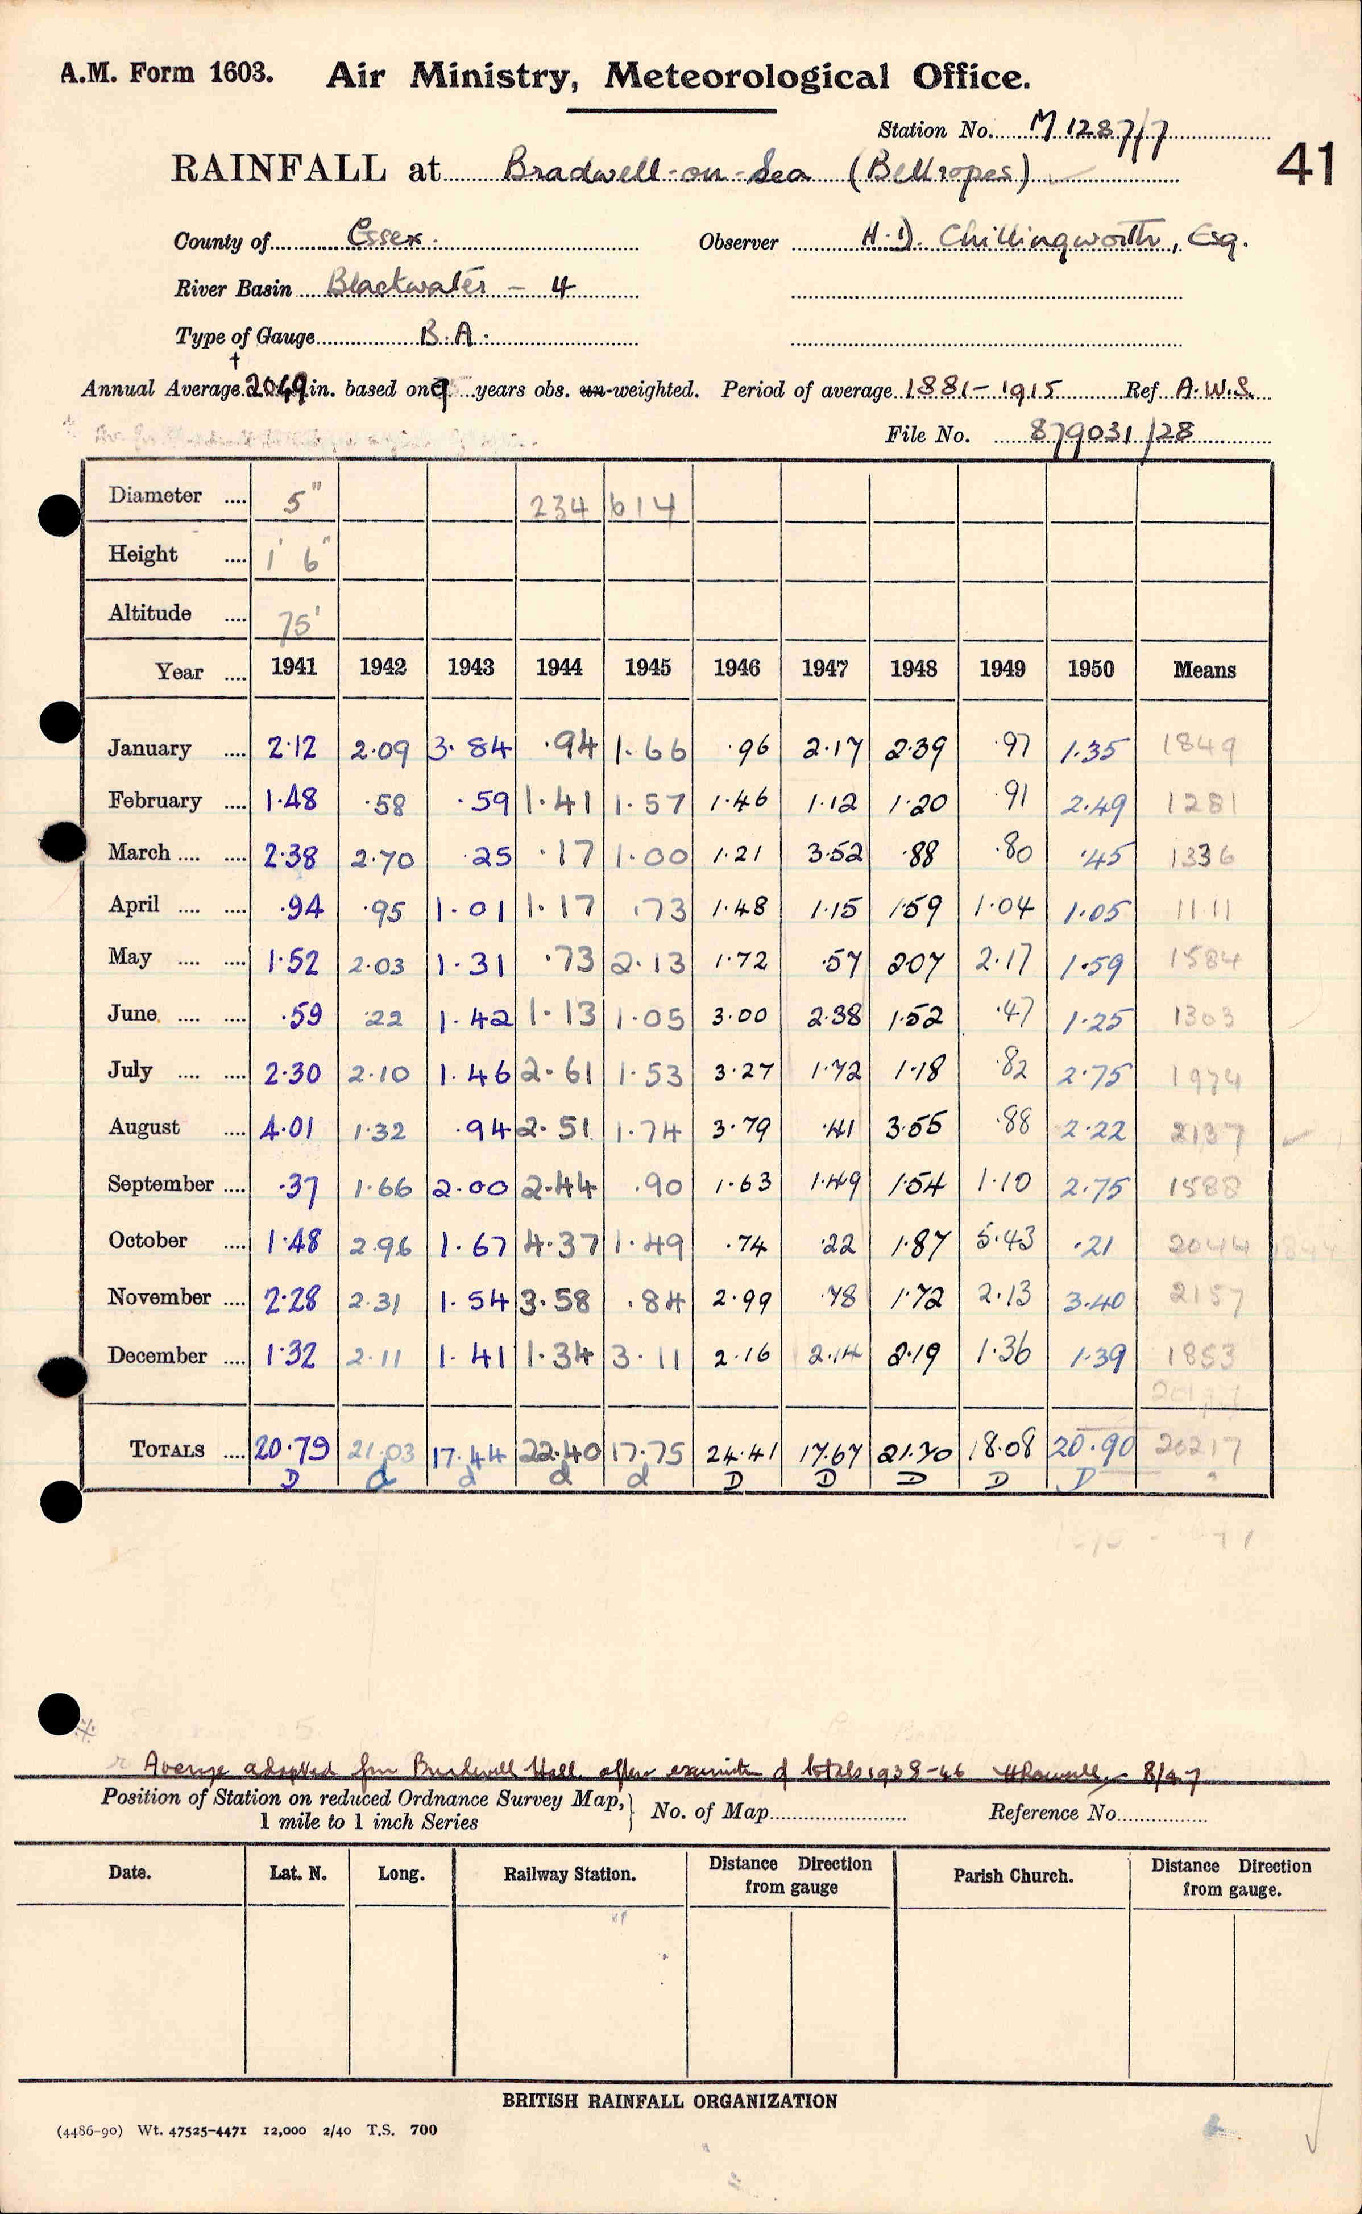 A.M. Form 1603. Air Ministry, Meteorological Office.
Station No. M 1287/7
41
RAINFALL at Bradwell-on-Sea (Bellropes)
County of Essex. Observer H.D. Chillingworth, Esq.
River Basin Blackwater - 4
Type of Gauge B.A.
†
Annual Average 20.49 in. based on 9 years obs. un-weighted. Period of average 1881-1915 Ref A.W.S.
File No. 879031/28
Diameter .... 5" 234 614
Height .... 1' 6"
Altitude .... 75'
Year .... 1941 1942 1943 1944 1945 1946 1947 1948 1949 1950 Means
January .... 2.12 2.09 3.84 .94 1.66 .96 2.17 2.39 .97 1.35 1849
February .... 1.48 .58 .59 1.41 1.57 1.46 1.12 1.20 .91 2.49 1281
March .... .... 2.38 2.70 .25 .17 1.00 1.21 3.52 .88 .80 .45 1336
April .... .... .94 .95 1.01 1.17 .73 1.48 1.15 1.59 1.04 1.05 1111
May .... .... 1.52 2.03 1.31 .73 2.13 1.72 .57 2.07 2.17 1.59 1584
June .... .... .59 .22 1.42 1.13 1.05 3.00 2.38 1.52 .47 1.25 1303
July .... .... 2.30 2.10 1.46 2.61 1.53 3.27 1.72 1.18 .82 2.75 1974
August .... 4.01 1.32 .94 2.51 1.74 3.79 .41 3.55 .88 2.22 2137
September .... .37 1.66 2.00 2.44 .90 1.63 1.49 1.54 1.10 2.75 1588
October .... 1.48 2.96 1.67 4.37 1.49 .74 .22 1.87 5.43 .21 2044 1844
November .... 2.28 2.31 1.54 3.58 .84 2.99 .78 1.72 2.13 3.40 2157
December .... 1.32 2.11 1.41 1.34 3.11 2.16 2.14 2.19 1.36 1.39 1853
TOTALS .... 20.79 21.03 17.44 22.40 17.75 24.41 17.67 21.70 18.08 20.90 20217
D d d d d D D D D D
Average adopted from Bradwell Hall after examination of totals 1938-46 8/47
Position of Station on reduced Ordnance Survey Map, } No. of Map Reference No.
1 mile to 1 inch Series
Date. Lat. N. Long. Railway Station. Distance Direction from gauge Parish Church. Distance Direction from gauge.
BRITISH RAINFALL ORGANIZATION
(4486-90) Wt. 47525-4471 12,000 2/40 T.S. 700